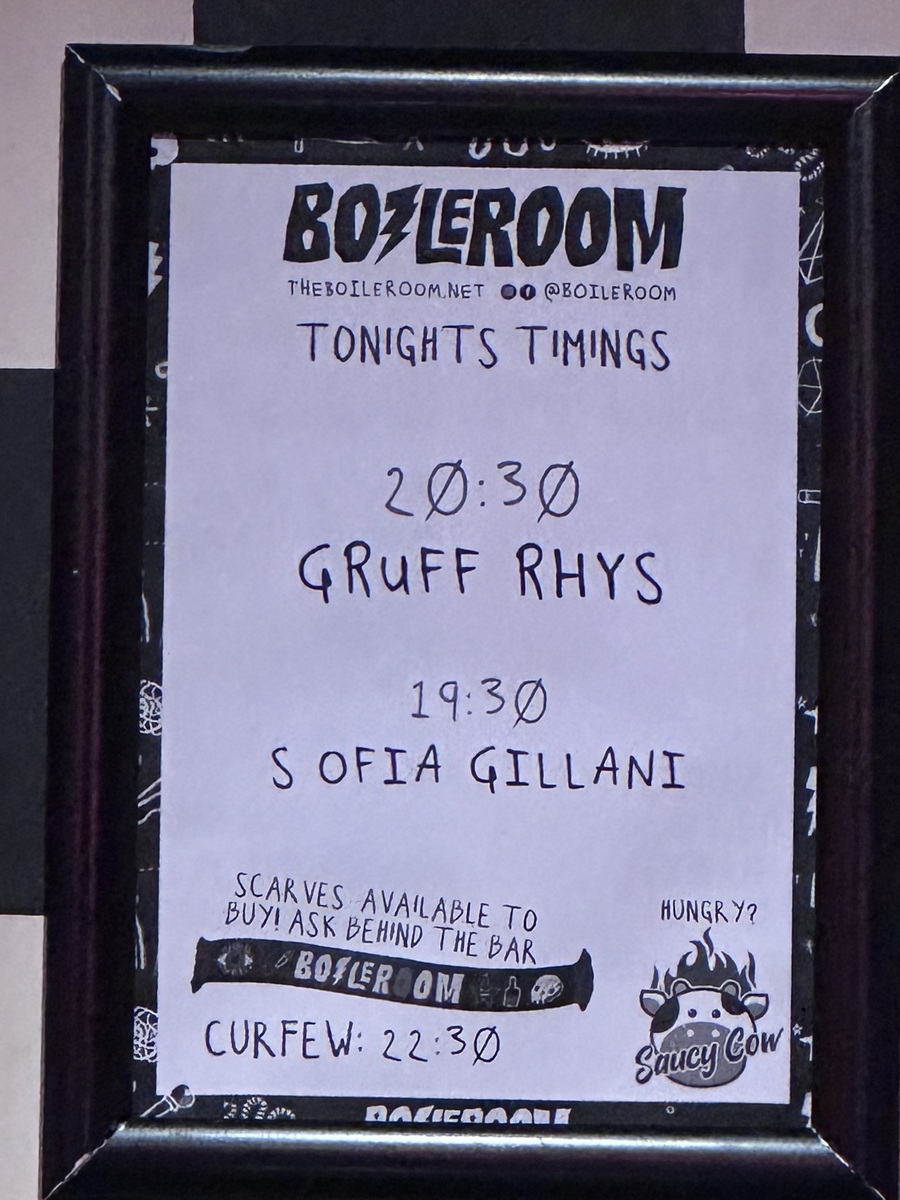 BOILEROOM
THEBOILEROOM.NET @BOILEROOM
TONIGHTS TIMINGS
20:30
GRUFF RHYS
19:30
SOFIA GILLANI
SCARVES AVAILABLE TO
BUY! ASK BEHIND THE BAR
BOILEROOM
CURFEW: 22:30
HUNGRY?
Saucy Cow
BOILEROOM